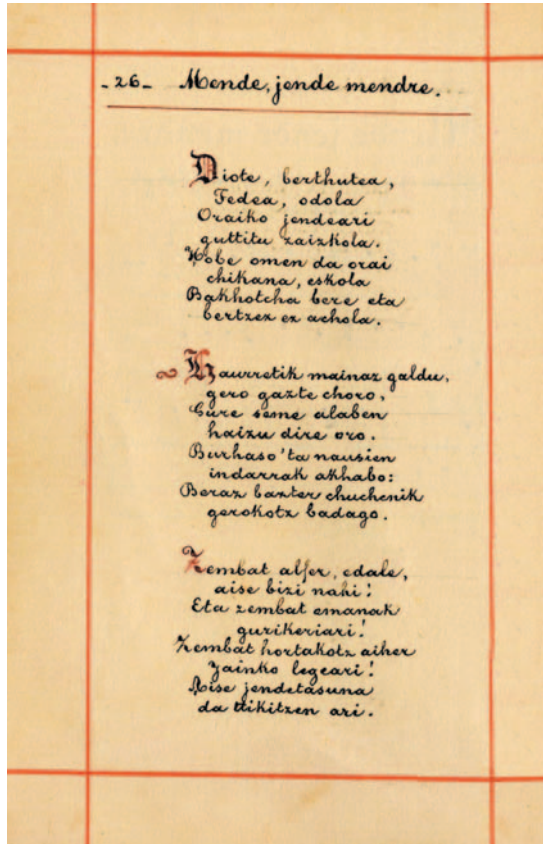 -26- Mende, jende mendre.
Diote, berthutea,
Fedea, odola
Oraiko jendeari
guttitu zaizkola.
Hobe omen da orai
chikana, eskola
Bakhotcha bere eta
bertzez ez achola.
Haurretik mainaz galdu,
gero gazte choro,
Gure seme alaben
haizu dire oro.
Burhaso'ta nausien
indarrak akhabo:
Beraz bazter chuchenik
gerokotz badago.
Zembat alfer, edale,
aise bizi nahi!
Eta zembat emanak
gurikeriari!
Zembat hortakotz aiher
Jainko legeari!
Aise jendetasuna
da ttikitzen ari.